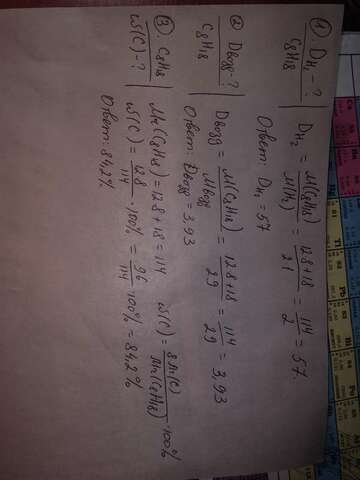 ① D H₂ - ?
C₈H₁₈
D H₂ = M(C₈H₁₈) / M(H₂) = 12·8+18 / 2·1 = 114 / 2 = 57.
Ответ: D H₂ = 57
② D возд - ?
C₈H₁₈
D возд = M(C₈H₁₈) / M возд = 12·8+18 / 29 = 114 / 29 = 3,93
Ответ: D возд = 3,93
③ C₈H₁₈
ω(C) - ?
Mr(C₈H₁₈) = 12·8+18 = 114
ω(C) = 8m(C) / m(C₈H₁₈) · 100%
ω(C) = 12·8 / 114 · 100% = 96 / 114 · 100% = 84,2%
Ответ: 84,2%